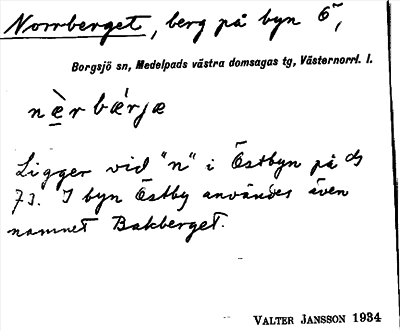 Norrberget, berg på byn 6,
Borgsjö sn, Medelpads västra domsagas tg, Västernorrl. l.
næ̀r bǽrjæ
Ligger vid "n" i Östbyn på
73. I byn Östby användes även
namnet Bakberget.
VALTER JANSSON 1934